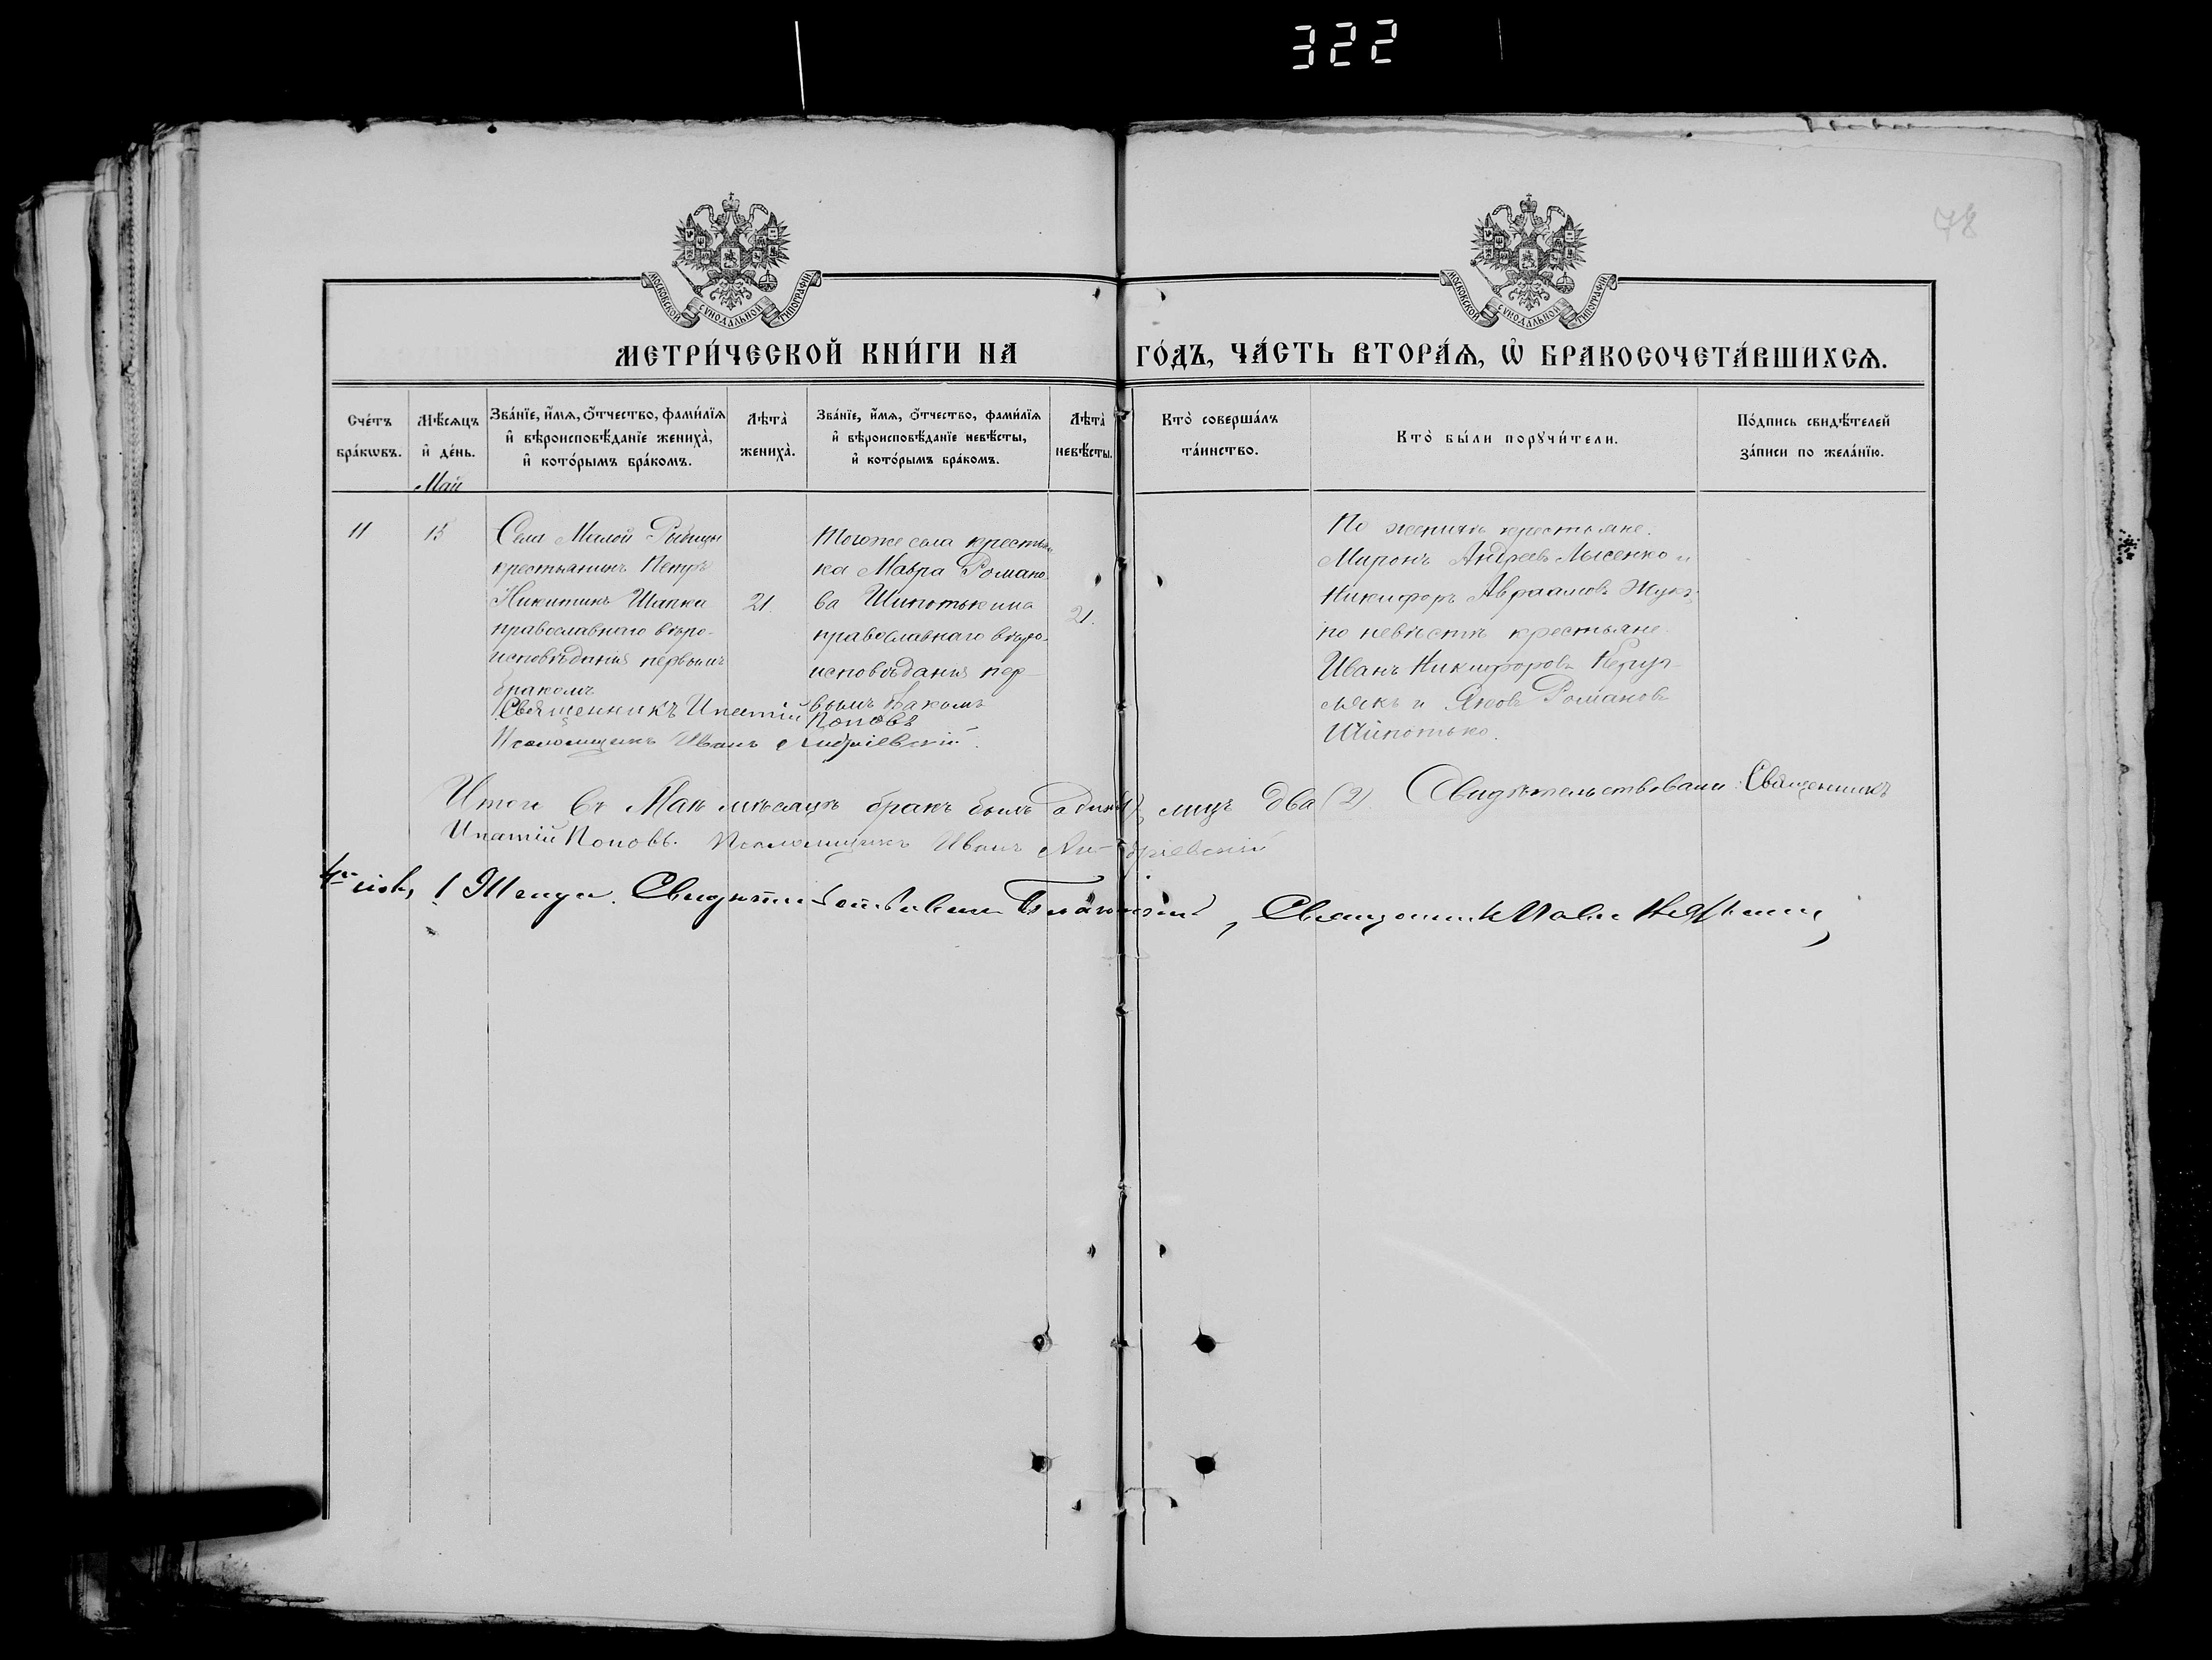 322
78
МОСКОВСКОЙ СѴНОДАЛЬНОЙ ТИПОГРАФІИ
МОСКОВСКОЙ СѴНОДАЛЬНОЙ ТИПОГРАФІИ
МЕТРИ́ЧЕСКОЙ КНИ́ГИ НА ГО́ДЪ, ЧА́СТЬ ВТОРА́Я, Ѡ҆ БРАКОСОЧЕТА́ВШИХСЯ.
Сче́тъ
бра́кѡвъ.
Мѣ́сяцъ
и҆ де́нь.
Май
Зва́нїе, и҆́мя, ѻ҆́тчество, фами́лїя
и҆ вѣроисповѣ́данїе жениха̀,
и҆ кото́рымъ бра́комъ.
Лѣта̀
жениха̀.
Зва́нїе, и҆́мя, ѻ҆́тчество, фами́лїя
и҆ вѣроисповѣ́данїе невѣ́сты,
и҆ кото́рымъ бра́комъ.
Лѣта̀
невѣ́сты.
Кто̀ соверша́лъ
та́инство.
Кто̀ бы́ли порꙋчи́тели.
По́дпись свидѣ́телей
за́писи по жела́нїю.
11
15
Села Малой Рыбицы
крестьянинъ Петръ
Никитинъ Шапка
православнаго вѣро-
исповѣданія первымъ
бракомъ
21.
Тогоже села крестьян
ка Мавра Романо
ва Шипотькина
православнаго вѣро-
исповѣданія пер
вымъ бракомъ
21.
По женихѣ крестьяне.
Миронъ Андреевъ Лысенко и
Никифоръ Авраамовъ Жукъ,
по невѣстѣ крестьяне
Иванъ Никифоровъ
и Яковъ Романовъ
Шипотько.
Священникъ Ипатій Поповъ
Псаломщикъ Иванъ Андріевскій.
Итого въ Маѣ мѣсяцѣ бракъ былъ одинъ (1), лицъ два (2). Свидѣтельствовали: Священникъ
Ипатій Поповъ. Псаломщикъ Иванъ Андріевскій